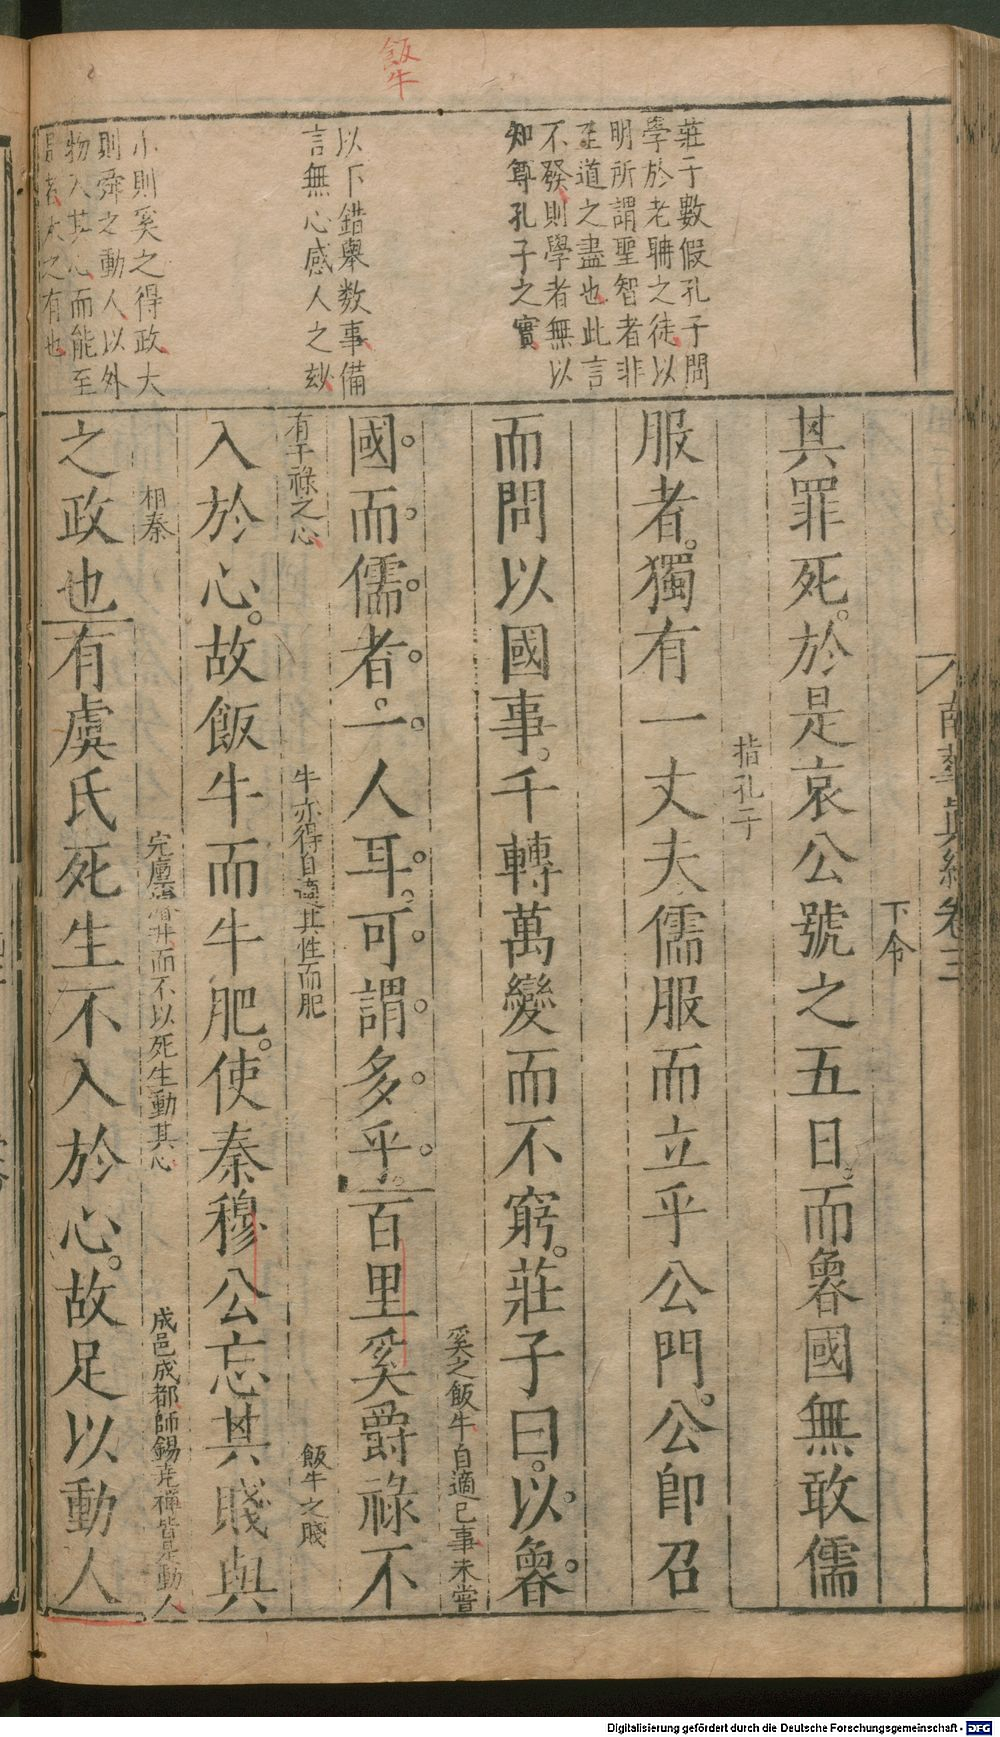 飯牛
莊子數假孔子問
學於老聃之徒以
明所謂聖智者非
至道之盡也此言
不發則學者無以
知尊孔子之實
以下錯舉数事備
言無心感人之玅
小則奚之得政大
則舜之動人以外
物入其心而能至
者太之有也
南華眞經卷三
下令
其罪死。於是哀公號之五日。而魯國無敢儒
指孔子
服者。獨有一丈夫儒服而立乎公門。公卽召
而問以國事。千轉萬變而不窮。莊子曰。以魯
奚之飯牛自適己事未嘗
國而儒者。一人耳。可謂多乎。百里奚爵祿不
有干祿之心
牛亦得自適其性而肥
飯牛之賤
入於心。故飯牛而牛肥。使秦穆公忘其賤與
相秦
完廩浚井而不以死生動其心
成邑成都師錫堯禪皆是動人
之政也有虞氏死生不入於心。故足以動人
Digitalisierung gefördert durch die Deutsche Forschungsgemeinschaft - DFG